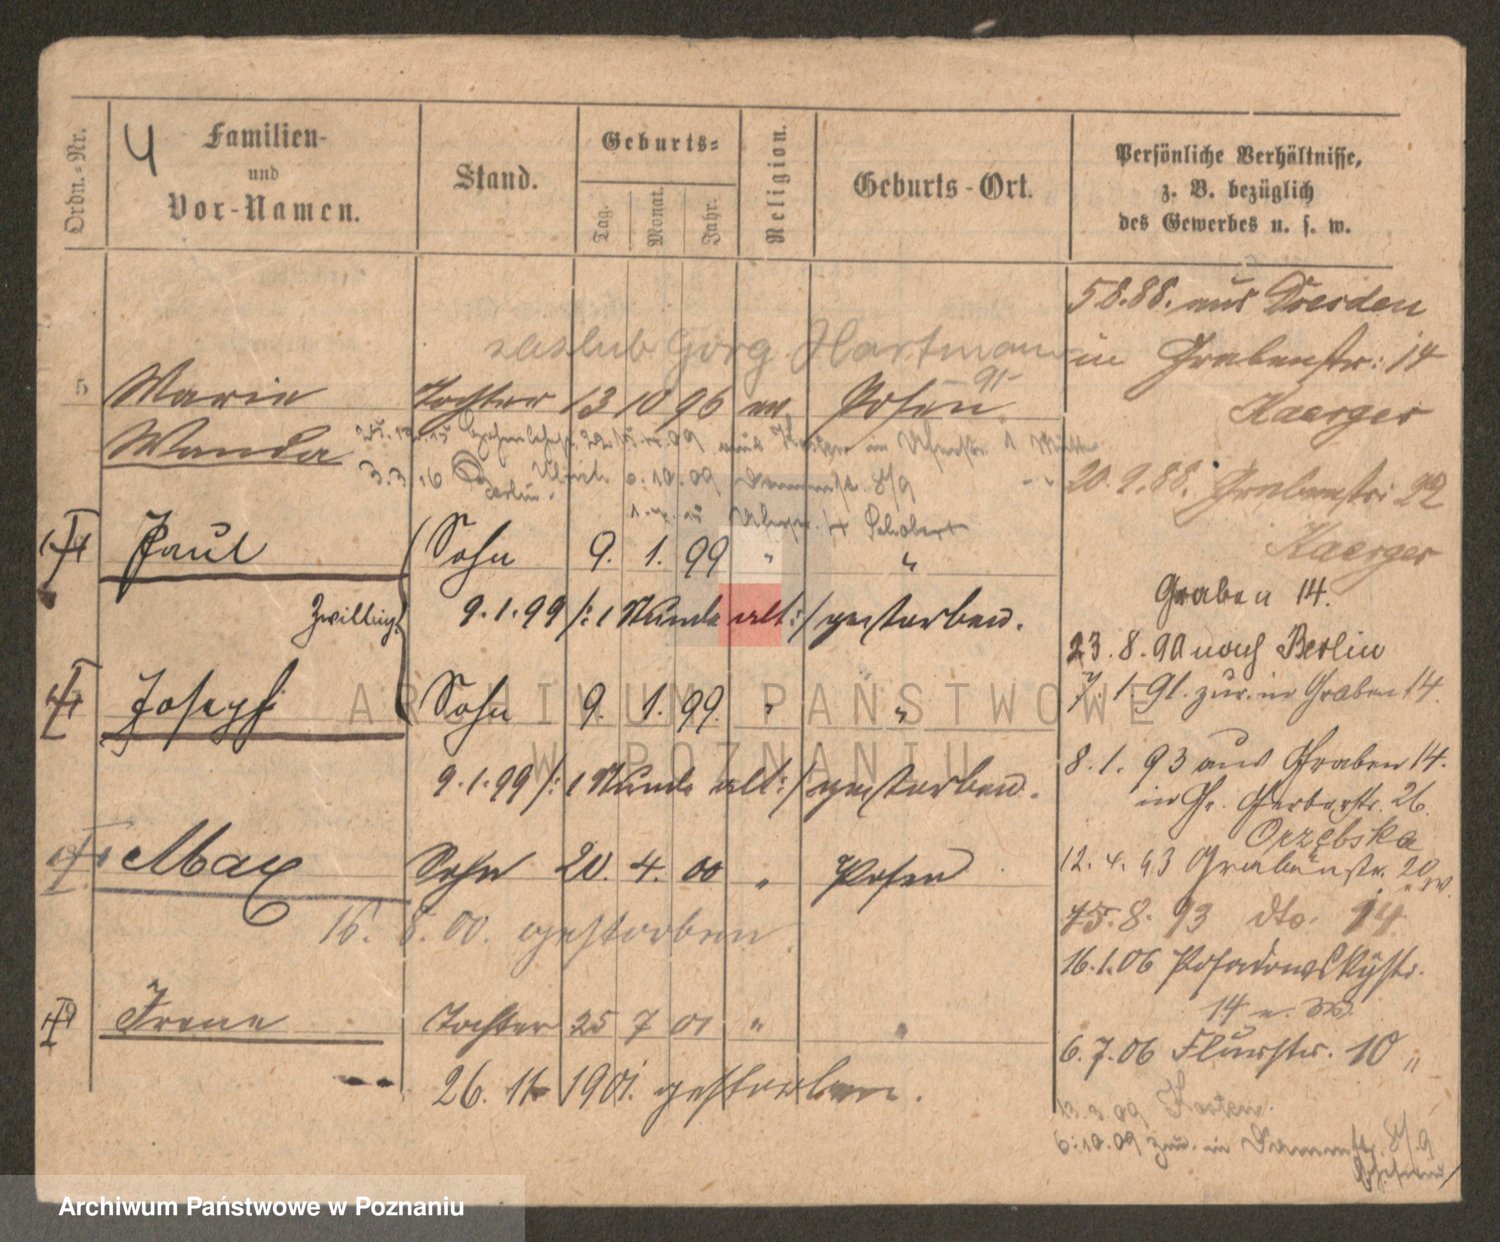 Ordn.-Nr.
4
Familien-
und
Vor-Namen.
Stand.
Geburts-
Tag.
Monat.
Jahr.
Religion.
Geburts-Ort.
Persönliche Verhältnisse,
z. B. bezüglich
des Gewerbes u. s. w.
58.88. aus Dresden
Hartmann in Grabenstr: 14
5 Marie Tochter 13 10 96 Posen
Kaerger
Wanda
20.9.88. Grabenstr: 22
3.3.16 Berlin. 6.10.09 8/9
Kaerger
Paul Sohn 9. 1. 99 " "
Graben 14.
Zwilling. 9.1.99 /: 1 Stunde alt :/ gestorben.
23.8.90 nach Berlin
7.1.91. zur. in Graben 14.
Joseph Sohn 9. 1. 99. " "
8.1.93 aus Graben 14.
9.1.99 /: 1 Stunde alt :/ gestorben.
in Gr. Gerberstr. 26.
Orzębska
Max Sohn 20. 4. 00 " Posen
12.4.93 Grabenstr. 20
16. 8. 00. gestorben.
15.8.93 dto. 14
16.1.06 Posadowskystr.
14
Irene Tochter 25 7 01 " "
6.7.06 Flurstr. 10 "
26. 11. 1901. gestorben.
13.3.09 Kosten.
6.10.09 zur. in Dammstr. 8/9
ARCHIWUM PAŃSTWOWE
W POZNANIU
Archiwum Państwowe w Poznaniu